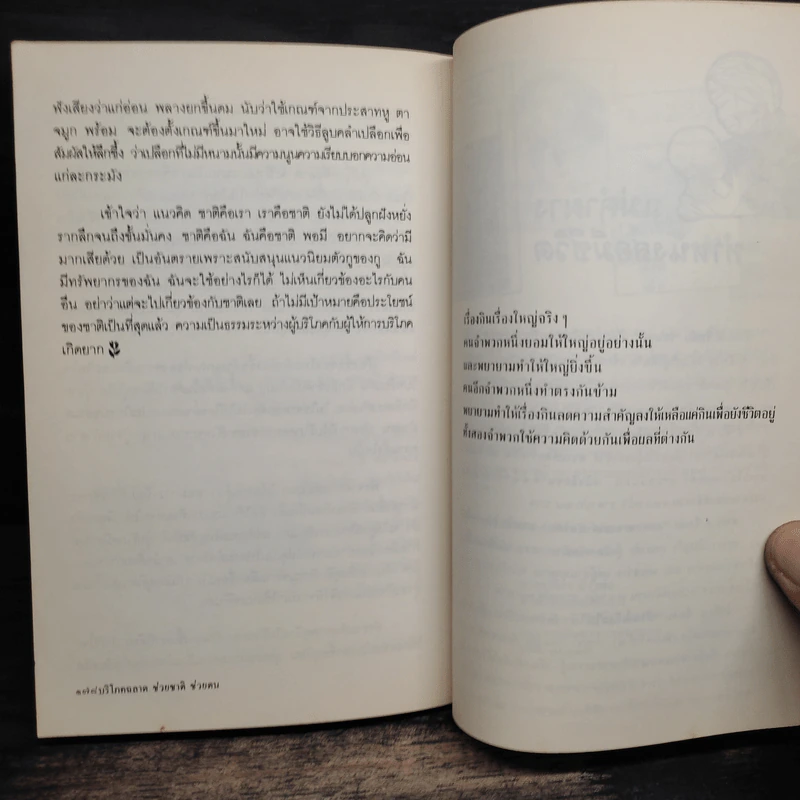 ฟังเสียงว่าแก่อ่อน พลางยกขึ้นดม นับว่าใช้เกณฑ์จากประสาทหู ตา
จมูก พร้อม จะต้องตั้งเกณฑ์ขึ้นมาใหม่ อาจใช้วิธีลูบคลำเปลือกเพื่อ
สัมผัสให้ลึกซึ้ง ว่าเปลือกที่ไม่มีหนามนั้นมีความนูนความเรียบบอกความอ่อน
แก่ละกระมัง
เข้าใจว่า แนวคิด ชาติคือเรา เราคือชาติ ยังไม่ได้ปลูกฝังหยั่ง
รากลึกจนถึงขั้นมั่นคง ชาติคือฉัน ฉันคือชาติ พอมี อยากจะคิดว่ามี
มากเสียด้วย เป็นอันตรายเพราะสนับสนุนแนวนิยมตัวกูของกู ฉัน
มีทรัพยากรของฉัน ฉันจะใช้อย่างไรก็ได้ ไม่เห็นเกี่ยวข้องอะไรกับคน
อื่น อย่าว่าแต่จะไปเกี่ยวข้องกับชาติเลย ถ้าไม่มีเป้าหมายคือประโยชน์
ของชาติเป็นที่สุดแล้ว ความเป็นธรรมระหว่างผู้บริโภคกับผู้ให้การบริโภค
เกิดยาก
๑๗๘ บริโภคฉลาด ช่วยชาติ ช่วยตน
เรื่องกินเรื่องใหญ่จริง ๆ
คนจำพวกหนึ่งยอมให้ใหญ่อยู่อย่างนั้น
และพยายามทำให้ใหญ่ยิ่งขึ้น
คนอีกจำพวกหนึ่งทำตรงกันข้าม
พยายามทำให้เรื่องกินลดความสำคัญลงให้เหลือแค่กินเพื่อยังชีวิตอยู่
ทั้งสองจำพวกใช้ความคิดด้วยกันเพื่อผลที่ต่างกัน